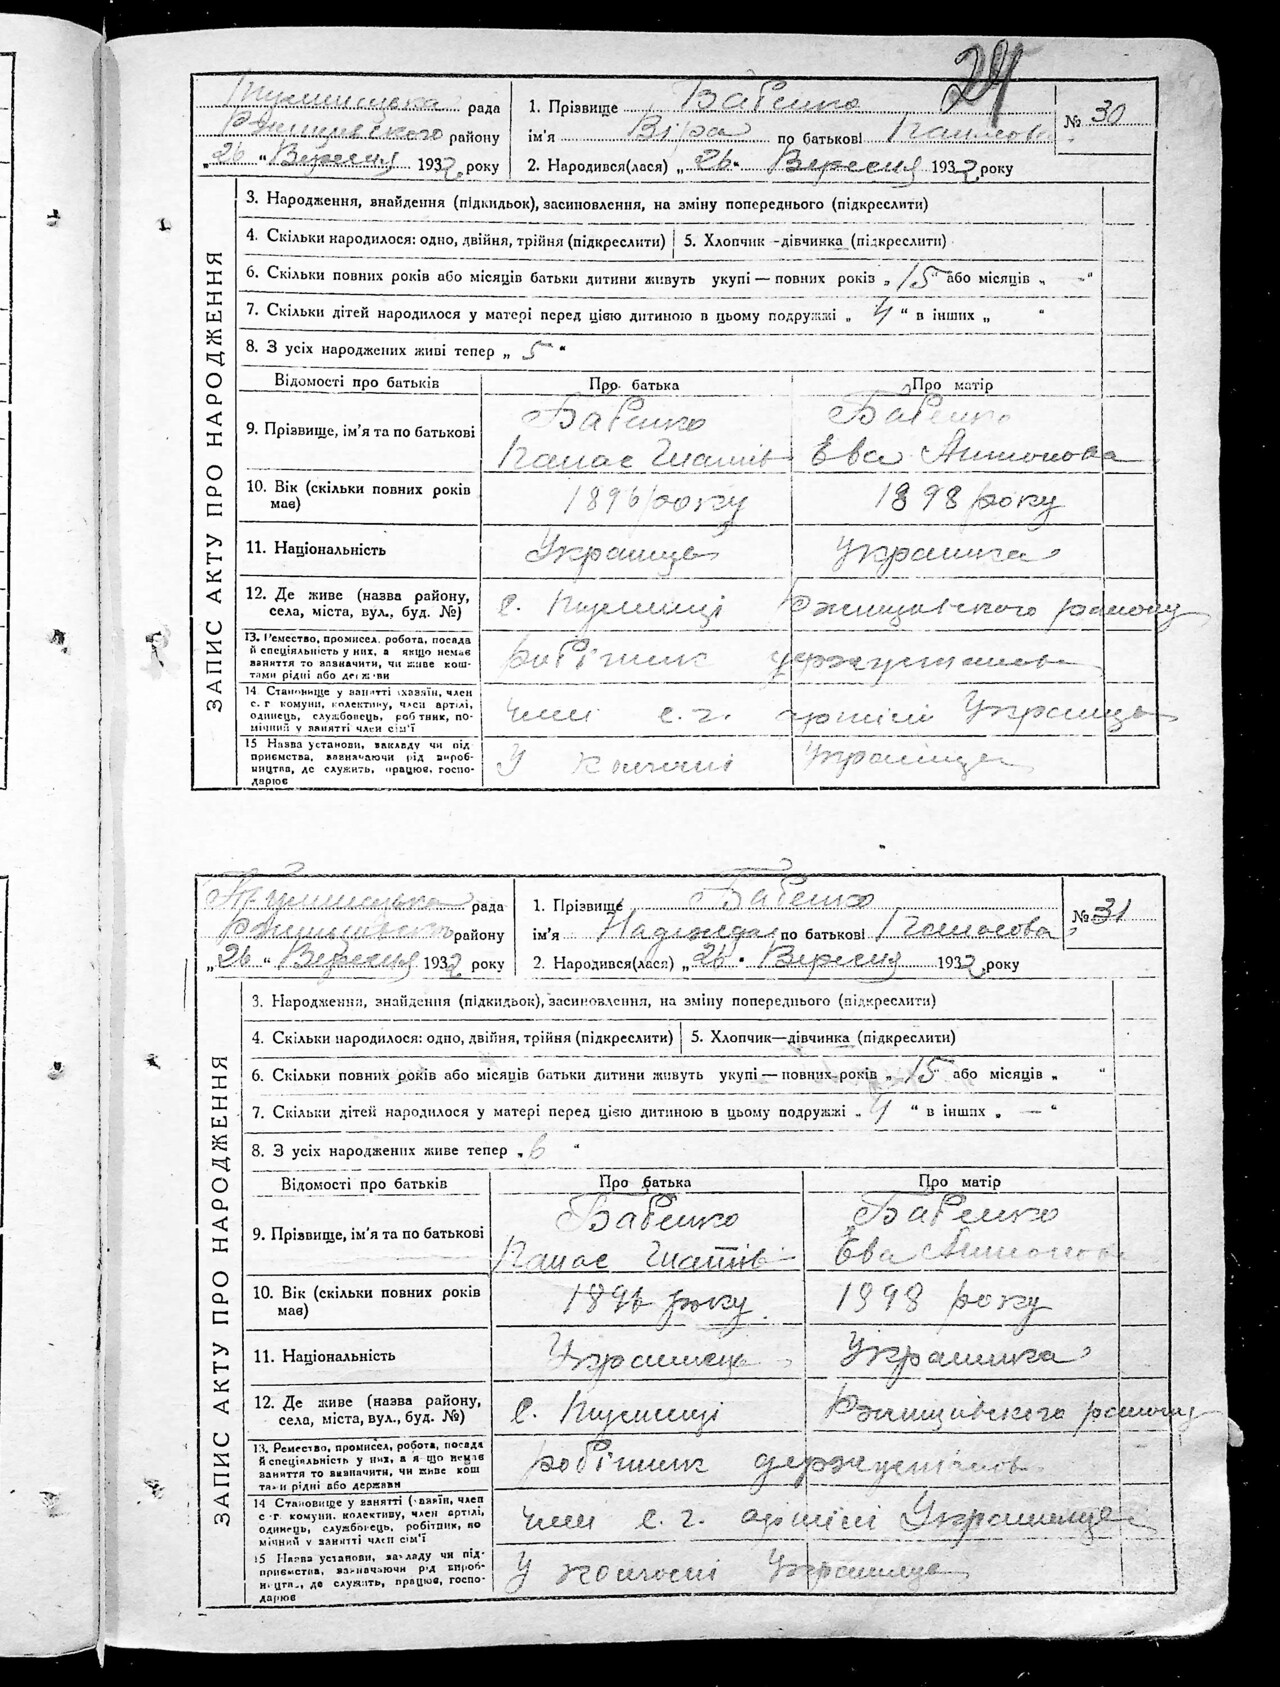 24
рада
Ржищівского району
„26" Вересня 1932 року
1. Прізвище Бабенко
ім'я Віра по батькові Панасова
2. Народився(лася) „26" Вересня 1932 року
№ 30
ЗАПИС АКТУ ПРО НАРОДЖЕННЯ
3. Народження, знайдення (підкидьок), засиновлення, на зміну попереднього (підкреслити)
4. Скільки народилося: одно, двійня, трійня (підкреслити) 5. Хлопчик -дівчинка (підкреслити)
6. Скільки повних років або місяців батьки дитини живуть укупі — повних років „15" або місяців „ — "
7. Скільки дітей народилося у матері перед цією дитиною в цьому подружжі „4" в інших „ "
8. З усіх народжених живі тепер „5"
Відомості про батьків Про батька Про матір
9. Прізвище, ім'я та по батькові
Бабенко
Панас Гнатів
Бабенко
Ева Антонова
10. Вік (скільки повних років
має)
1896 року 1898 року
11. Національність Украинець Украинка
12. Де живе (назва району,
села, міста, вул., буд. №)
Ржищивского району
13. Ремество, промисел, робота, посада
й спеціяльність у них, а якщо немає
заняття то зазначити, чи живе кош-
тами рідні або держави
робітник
14 Становище у занятті (хазяїн, член
с.-г комуни, колективу, член артілі,
одинець, службовець, робітник, по-
мічний у занятті член сім'ї
член с. г. артілі Украинець
15 Назва установи, закладу чи під
приємства, зазначаючи рід вироб-
ництва, де служить, працює, госпо-
дарює
У колгоспі Украинець
рада
району
„26" Вересня 1932 року
1. Прізвище Бабенко
ім'я Надежда по батькові Панасова
2. Народився(лася) „26" Вересня 1932 року
№ 31
ЗАПИС АКТУ ПРО НАРОДЖЕННЯ
3. Народження, знайдення (підкидьок), засиновлення, на зміну попереднього (підкреслити)
4. Скільки народилося: одно, двійня, трійня (підкреслити) 5. Хлопчик—дівчинка (підкреслити)
6. Скільки повних років або місяців батьки дитини живуть укупі — повних-років „15" або місяців „ "
7. Скільки дітей народилося у матері перед цією дитиною в цьому подружжі „4" в інших „ — "
8. З усіх народжених живе тепер „6"
Відомості про батьків Про батька Про матір
9. Прізвище, ім'я та по батькові
Бабенко
Панас Гнатів
Бабенко
Ева Антонова
10. Вік (скільки повних років
має)
1896 року 1898 року
11. Національність Украинець Украинка
12. Де живе (назва району,
села, міста, вул., буд. №)
Ржищивского району
13. Ремество, промисел, робота, посада
й спеціяльність у них, а якщо немає
заняття то зазначити, чи живе кош
тами рідні або держави
робітник
14 Становище у занятті (хазяїн, член
с.-г. комуни, колективу, член артілі,
одинець, службовець, робітник, по
мічний у занятті член сім'ї
член с. г. артілі Украинець
15 Назва установи, закладу чи під-
приємства, зазначаючи рід вироб-
ництва, де служить, працює, госпо-
дарює
У колгоспі Украинець